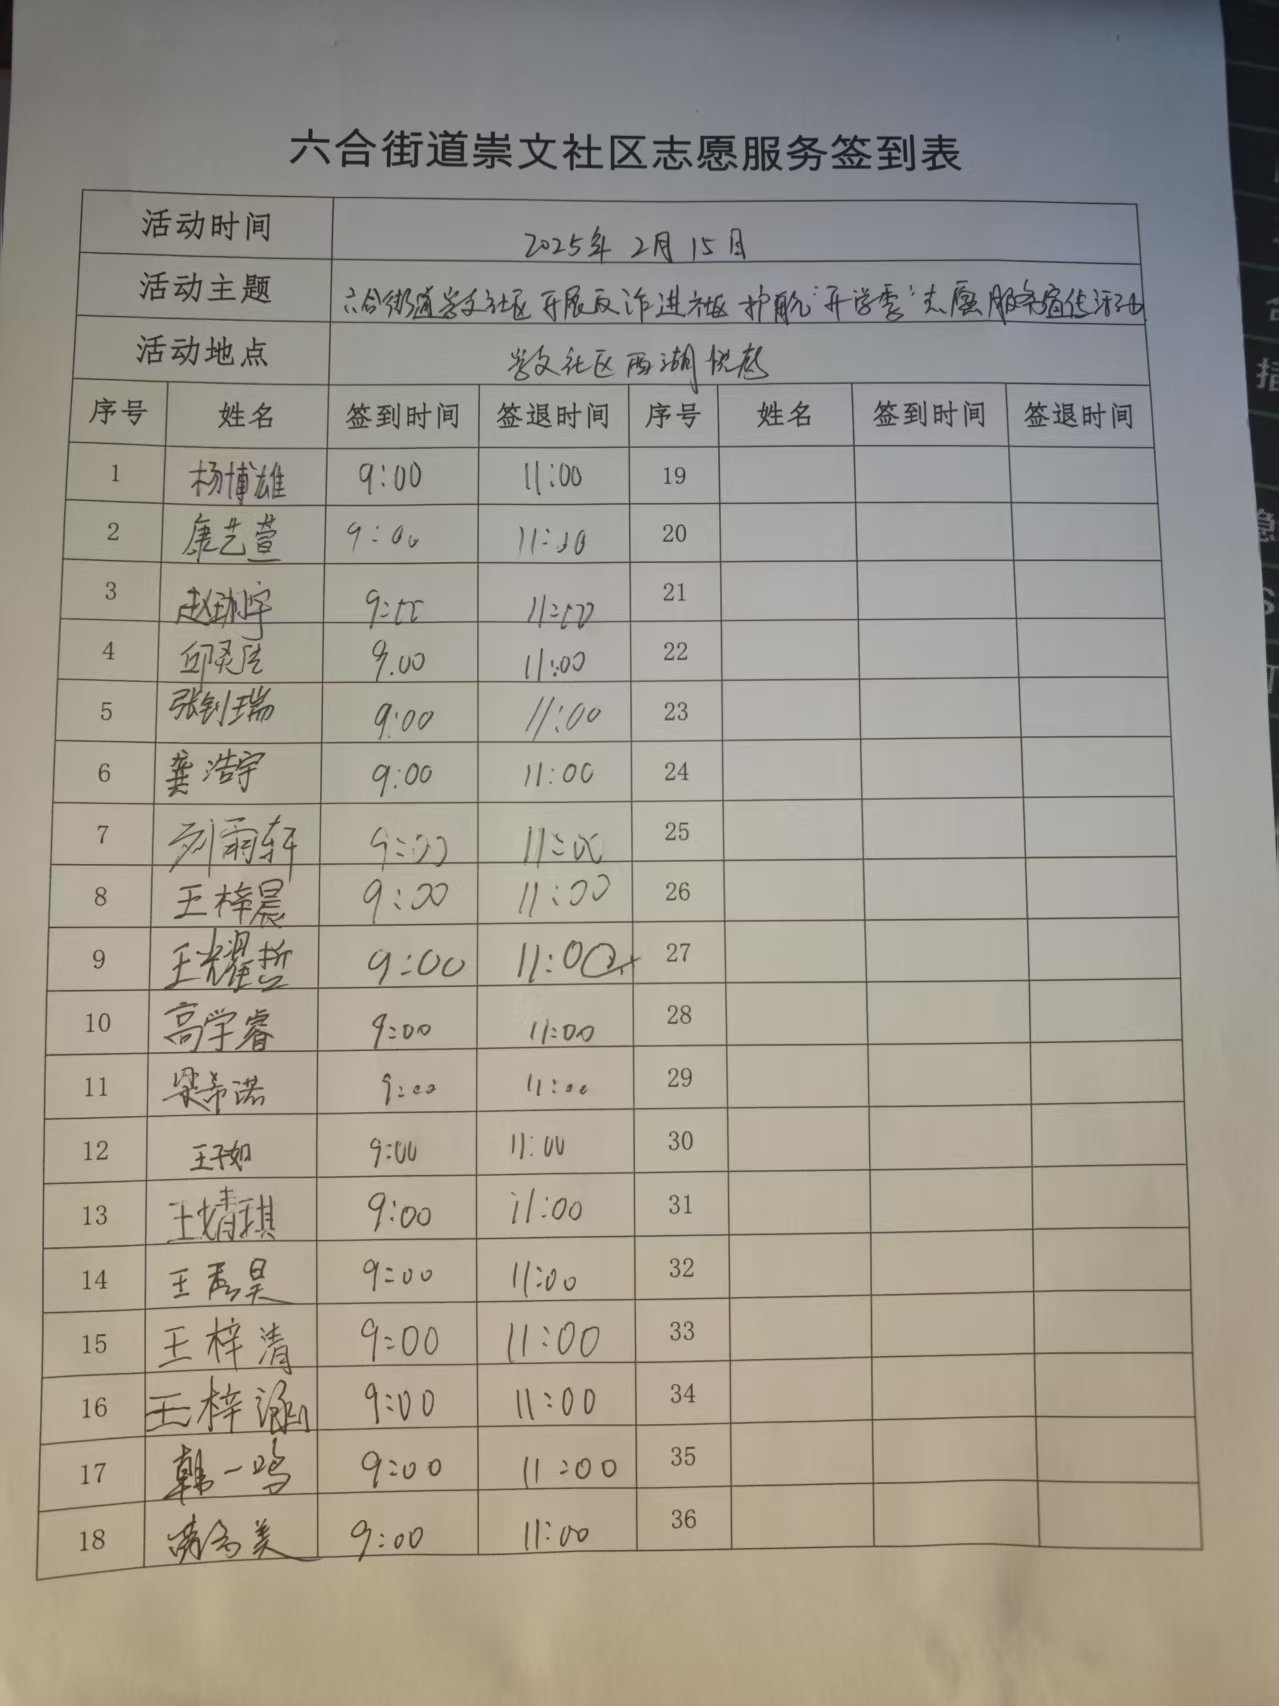 六合街道崇文社区志愿服务签到表
活动时间 2025年2月15日
活动主题 六合街道崇文社区开展反诈进社区护航“开学季”志愿服务宣传活动
活动地点 崇文社区西湖悦
序号 姓名 签到时间 签退时间 序号 姓名 签到时间 签退时间
1 杨博雄 9:00 11:00 19
2 康艺萱 9:00 11:00 20
3 赵 宇 9:00 11:00 21
4 邱 9:00 11:00 22
5 张钊瑞 9:00 11:00 23
6 龚浩宇 9:00 11:00 24
7 刘雨轩 9:00 11:00 25
8 王梓晨 9:00 11:00 26
9 王耀哲 9:00 11:00 27
10 高学睿 9:00 11:00 28
11 梁希诺 9:00 11:00 29
12 王子如 9:00 11:00 30
13 王婧琪 9:00 11:00 31
14 王 昊 9:00 11:00 32
15 王梓清 9:00 11:00 33
16 王梓涵 9:00 11:00 34
17 韩一鸣 9:00 11:00 35
18 美 9:00 11:00 36